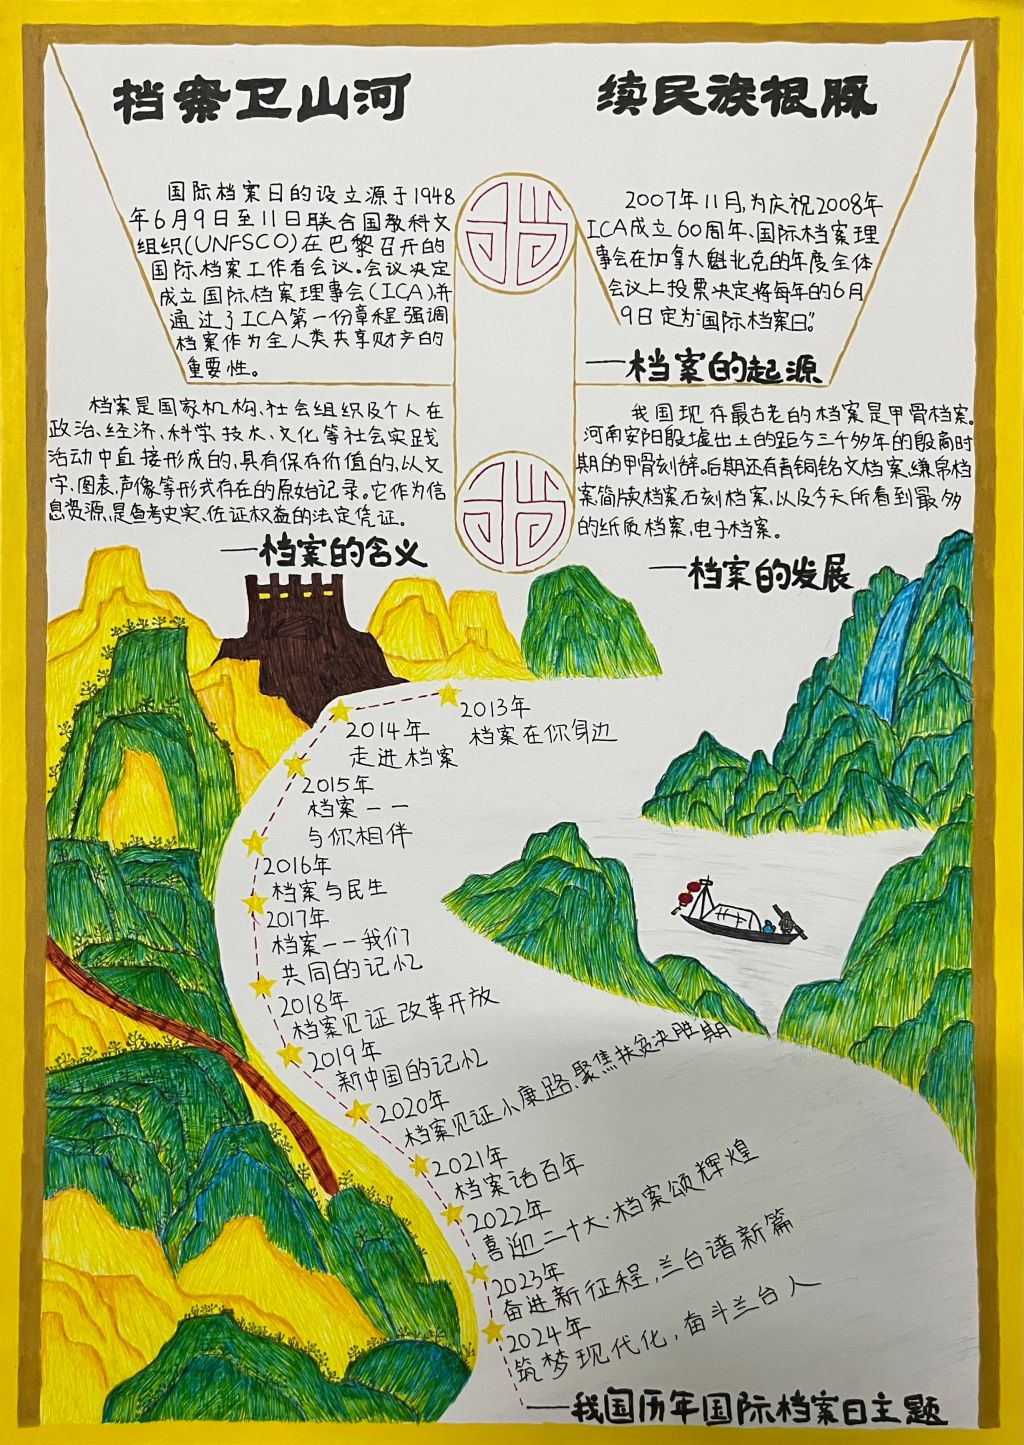 档案卫山河
续民族根脉
国际档案日的设立源于1948
年6月9日至11日联合国教科文
组织(UNFSCO)在巴黎召开的
国际档案工作者会议。会议决定
成立国际档案理事会(ICA),并
通过了ICA第一份章程强调
档案作为全人类共享财产的
重要性。
2007年11月,为庆祝2008年
ICA成立60周年、国际档案理
事会在加拿大魁北克的年度全体
会议上投票决定将每年的6月
9日定为“国际档案日”。
——档案的起源
档案是国家机构、社会组织及个人在
政治、经济、科学、技术、文化等社会实践
活动中直接形成的,具有保存价值的,以文
字、图表、声像等形式存在的原始记录。它作为信
息资源,是查考史实、佐证权益的法定凭证。
——档案的含义
我国现存最古老的档案是甲骨档案。
河南安阳殷墟出土的距今三千多年的殷商时
期的甲骨刻辞。后期还有青铜铭文档案、缣帛档
案简牍档案石刻档案、以及今天所看到最多
的纸质档案,电子档案。
——档案的发展
2013年
档案在你身边
2014年
走进档案
2015年
档案——
与你相伴
2016年
档案与民生
2017年
档案——我们
共同的记忆
2018年
档案见证改革开放
2019年
新中国的记忆
2020年
档案见证小康路、聚焦扶贫决胜期
2021年
档案话百年
2022年
喜迎二十大·档案颂辉煌
2023年
奋进新征程,兰台谱新篇
2024年
筑梦现代化,奋斗兰台人
——我国历年国际档案日主题